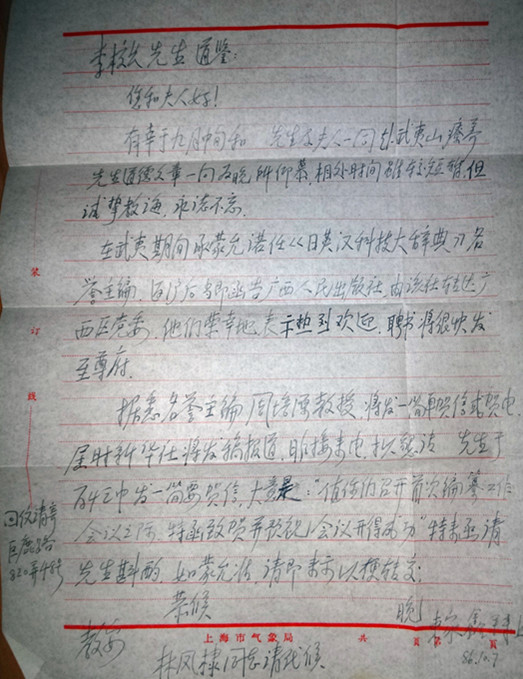 李校长先生道鉴：
您和夫人好！
有幸于九月中旬和 先生及夫人一同在武夷山疗养
先生道德文章一向为晚所仰慕，相处时间虽较短暂，但
诚挚教诲，永志不忘。
在武夷期间承蒙允诺任《日英汉科技大辞典》名
誉主编，返沪后当即函告广西人民出版社，由该社转达广
西区党委，他们荣幸地表示热烈欢迎，聘书将很快发
至尊府。
据悉名誉主编周培源教授，将发一简单贺信或贺电，
届时新华社将发稿报道，日前接来电，拟敬请 先生于
百忙中发一简要贺信，大意是：“值你们召开首次编纂工作
会议之际，特函致贺并预祝会议开得成功”特来函请
先生斟酌，如蒙允准，请即来示以便转交。
恭候
教安
晚
86.10.7
林凤棣同志请代候
回信请寄
巨鹿路
820弄48号
装
订
线
上海市气象局 共 页 第 页